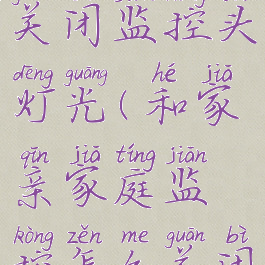 关闭监控头
dēng guāng hé jiā
灯光(和家
qīn jiā tíng jiān
亲家庭监
kòng zěn me guān bì
控怎么关闭